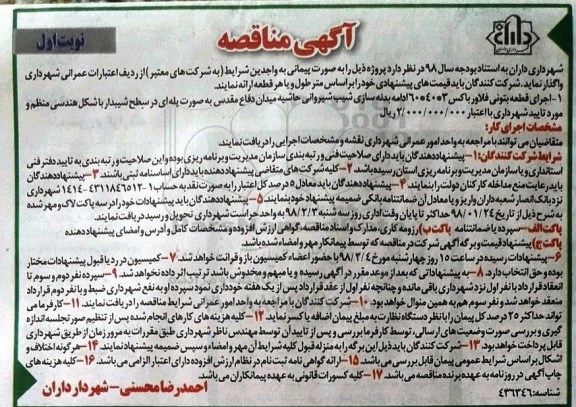 آگهی مناقصه
نوبت اول
شهرداری داران به استناد بودجه سال ۹۸ در نظر دارد پروژه ذیل را به صورت پیمانی به واجدین شرایط (به شرکت‌های معتبر) از ردیف اعتبارات عمرانی شهرداری
واگذار نماید. شرکت کنندگان باید قیمت‌های پیشنهادی خود را براساس متر طول و یا هر قطعه ارائه نمایند.
۱- اجرای قطعه بتونی فلاور باکس ۳۰*۴۰*۶۰ ادامه بدنه سازی شیب شیروانی حاشیه میدان دفاع مقدس به صورت پله ای در سطح شیبدار با شکل هندسی منظم و
مورد تایید شهرداری با اعتبار ۲/۰۰۰/۰۰۰/۰۰۰ ریال
مشخصات اجرای کار:
متقاضیان می توانند با مراجعه به واحد امور عمرانی شهرداری نقشه و مشخصات اجرایی را دریافت نمایند.
شرایط شرکت کنندگان: ۱- پیشنهاددهندگان باید دارای صلاحیت فنی و رتبه بندی سازمان مدیریت و برنامه ریزی بوده و این صلاحیت و رتبه بندی به تایید دفتر فنی
استانداری و یا سازمان مدیریت و برنامه ریزی استان رسیده باشد. ۲- کلیه شرکت‌های متقاضی پیشنهاددهنده باید دارای اساسنامه ثبتی باشند. ۳- پیشنهاددهندگان
باید رعایت منع مداخله کارکنان دولت را بنمایند. ۴- پیشنهاددهندگان باید معادل ۵ درصد کل اعتبار را به صورت نقد به حساب ۱-۴۳۱۱۸۴۶۵۱۲-۱۴۱۴ شهرداری
نزد بانک انصار شعبه داران واریز و یا معادل آن ضمانتنامه بانکی ضمیمه پیشنهاد خود بنمایند. ۵- پیشنهاددهندگان باید پیشنهادات خود را در سه پاکت لاک و مهر شده
به شرح ذیل از تاریخ ۹۸/۰۱/۲۴ حداکثر تا پایان وقت اداری روز سه شنبه ۹۸/۲/۳ به واحد حراست شهرداری تحویل و رسید دریافت نمایند.
پاکت الف- سپرده یا ضمانتنامه پاکت ب) رزومه کاری، مدارک و اسناد مناقصه، گواهی ارزش افزوده و مشخصات کامل و آدرس و امضای پیشنهاددهنده
پاکت ج) پیشنهاد قیمت و برگه آگهی شرکت در مناقصه که توسط پیمانکار مهر و امضاء شده باشد.
۶- پیشنهادات رسیده در ساعت ۱۵ روز چهارشنبه مورخ ۹۸/۲/۴ با حضور اعضاء کمیسیون باز و قرائت خواهند شد. ۷- کمیسیون در رد یا قبول پیشنهادات مختار
بوده و حق انتخاب دارد. ۸- به پیشنهاداتی که بعد از موعد مقرر در آگهی رسیده و یا مبهم و مخدوش باشد ترتیب اثر داده نخواهد شد. ۹- سپرده نفر دوم و سوم تا
انعقاد قرارداد با نفر اول نزد شهرداری باقی مانده و چنانچه نفر اول از عقد قرارداد پس از یک هفته خودداری نمود سپرده او به نفع شهرداری ضبط و با نفر دوم قرارداد
منعقد خواهد شد و نفر سوم هم به همین منوال خواهد بود. ۱۰- شرکت کنندگان با مراجعه به واحد امور عمرانی شرایط مناقصه را دریافت نمایند. ۱۱- کارفرما می
تواند حداکثر ۲۵ درصد کل پیمان را با نظر دستگاه نظارت به مبلغ پیمان اضافه یا کسر نماید. ۱۲- کلیه هزینه های کارهای انجام شده پس از تنظیم صورتجلسه اندازه
گیری و بررسی صورت وضعیت‌های ارسالی، توسط کارفرما بررسی و پس از تایید آن توسط مهندس ناظر شهرداری طبق مقررات به مرور زمان از طریق شهرداری
قابل پرداخت خواهد بود. ۱۳- شرکت کنندگان باید ذیل این برگه را به منزله قبول کلیه شرایط آن مهر و امضاء و سپس ضمیمه پیشنهاد نمایند. ۱۴- هرگونه اختلاف و
اشکال بر اساس شرایط عمومی پیمان قابل بررسی می باشد. ۱۵- ارائه گواهی نامه ثبت نام در نظام ارزش افزوده دارای اعتبار الزامی می باشد. ۱۶- کلیه هزینه های
چاپ آگهی در روزنامه به عهده برنده مناقصه می باشد. ۱۷- کلیه کسورات قانونی به عهده پیمانکاران می باشد.
شناسه: ۴۳۶۳۴۶
احمدرضا محسنی- شهردار داران